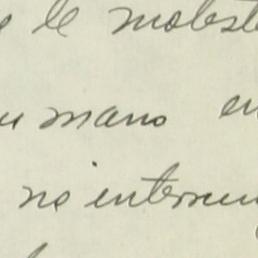 le moleste
mano en
no interrum